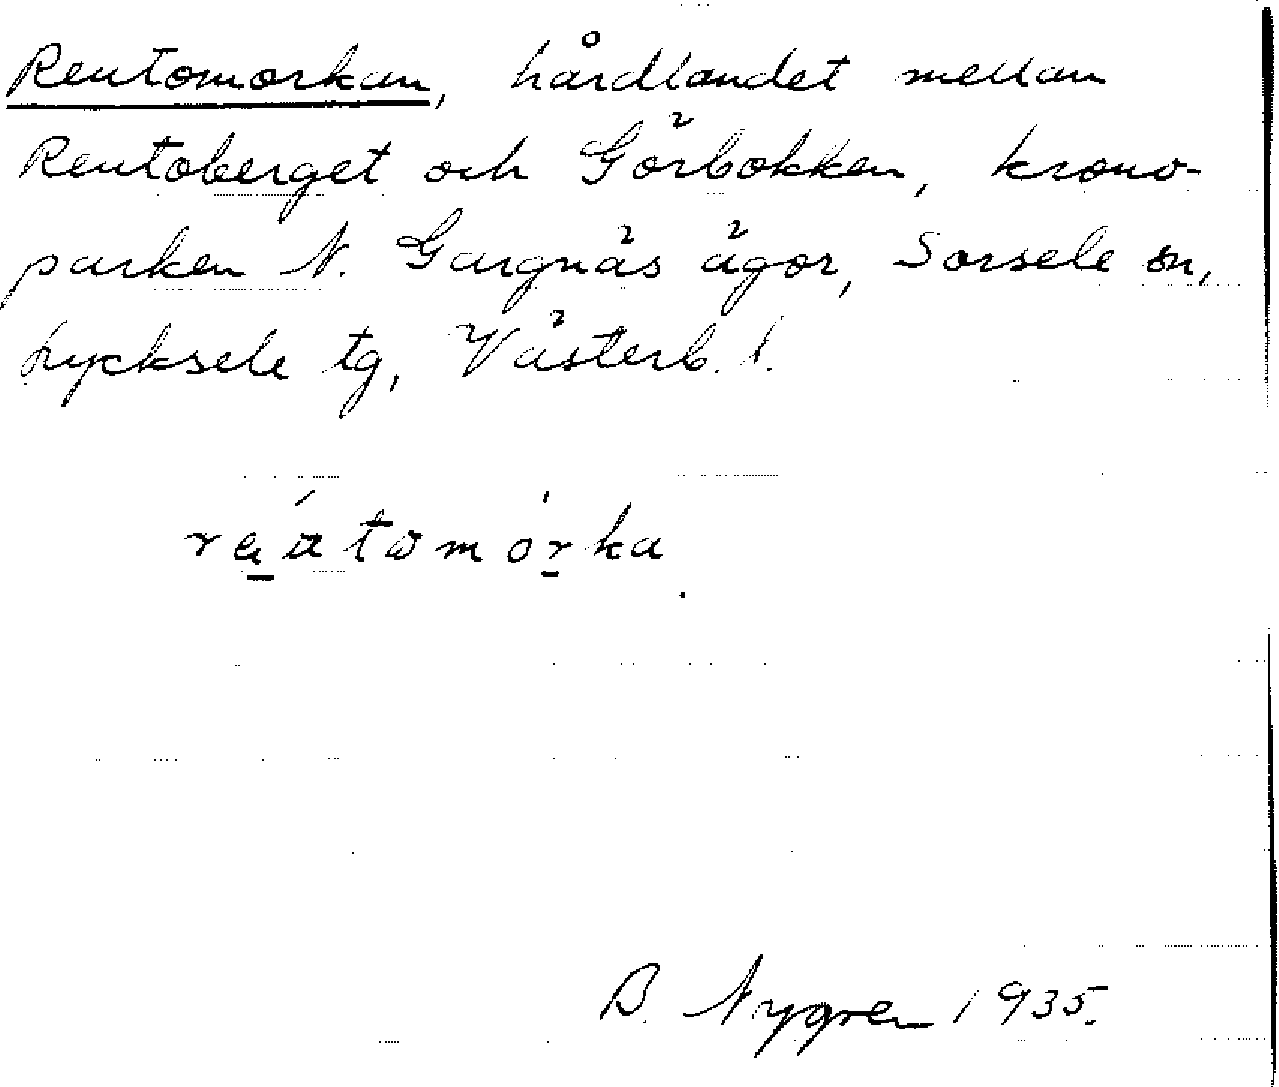 Reutomorkan, hårdlandet mellan
Reutoberget och Görbokken, krono-
parken N. Gargnäs ägor, Sorsele sn,
Lycksele tg, Västerb. l.
B. Nygren 1935.